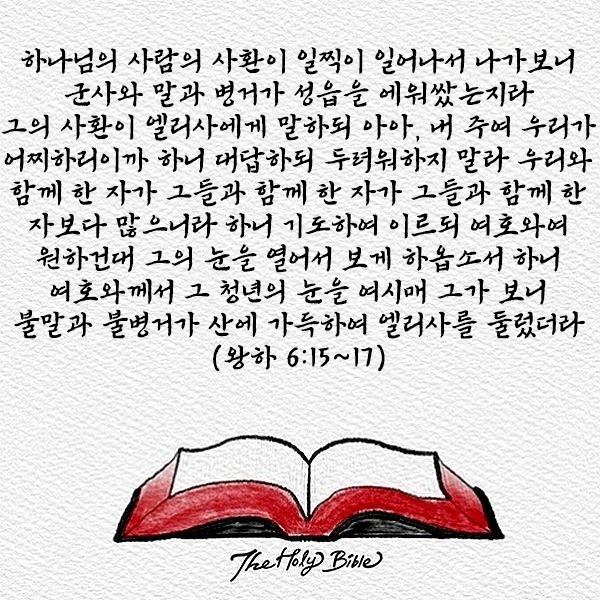 하나님의 사람의 사환이 일찍이 일어나서 나가보니
군사와 말과 병거가 성읍을 에워쌌는지라
그의 사환이 엘리사에게 말하되 아아, 내 주여 우리가
어찌하리이까 하니 대답하되 두려워하지 말라 우리와
함께 한 자가 그들과 함께 한 자가 그들과 함께 한
자보다 많으니라 하니 기도하여 이르되 여호와여
원하건대 그의 눈을 열어서 보게 하옵소서 하니
여호와께서 그 청년의 눈을 여시매 그가 보니
불말과 불병거가 산에 가득하여 엘리사를 둘렀더라
(왕하 6:15~17)
The Holy Bible